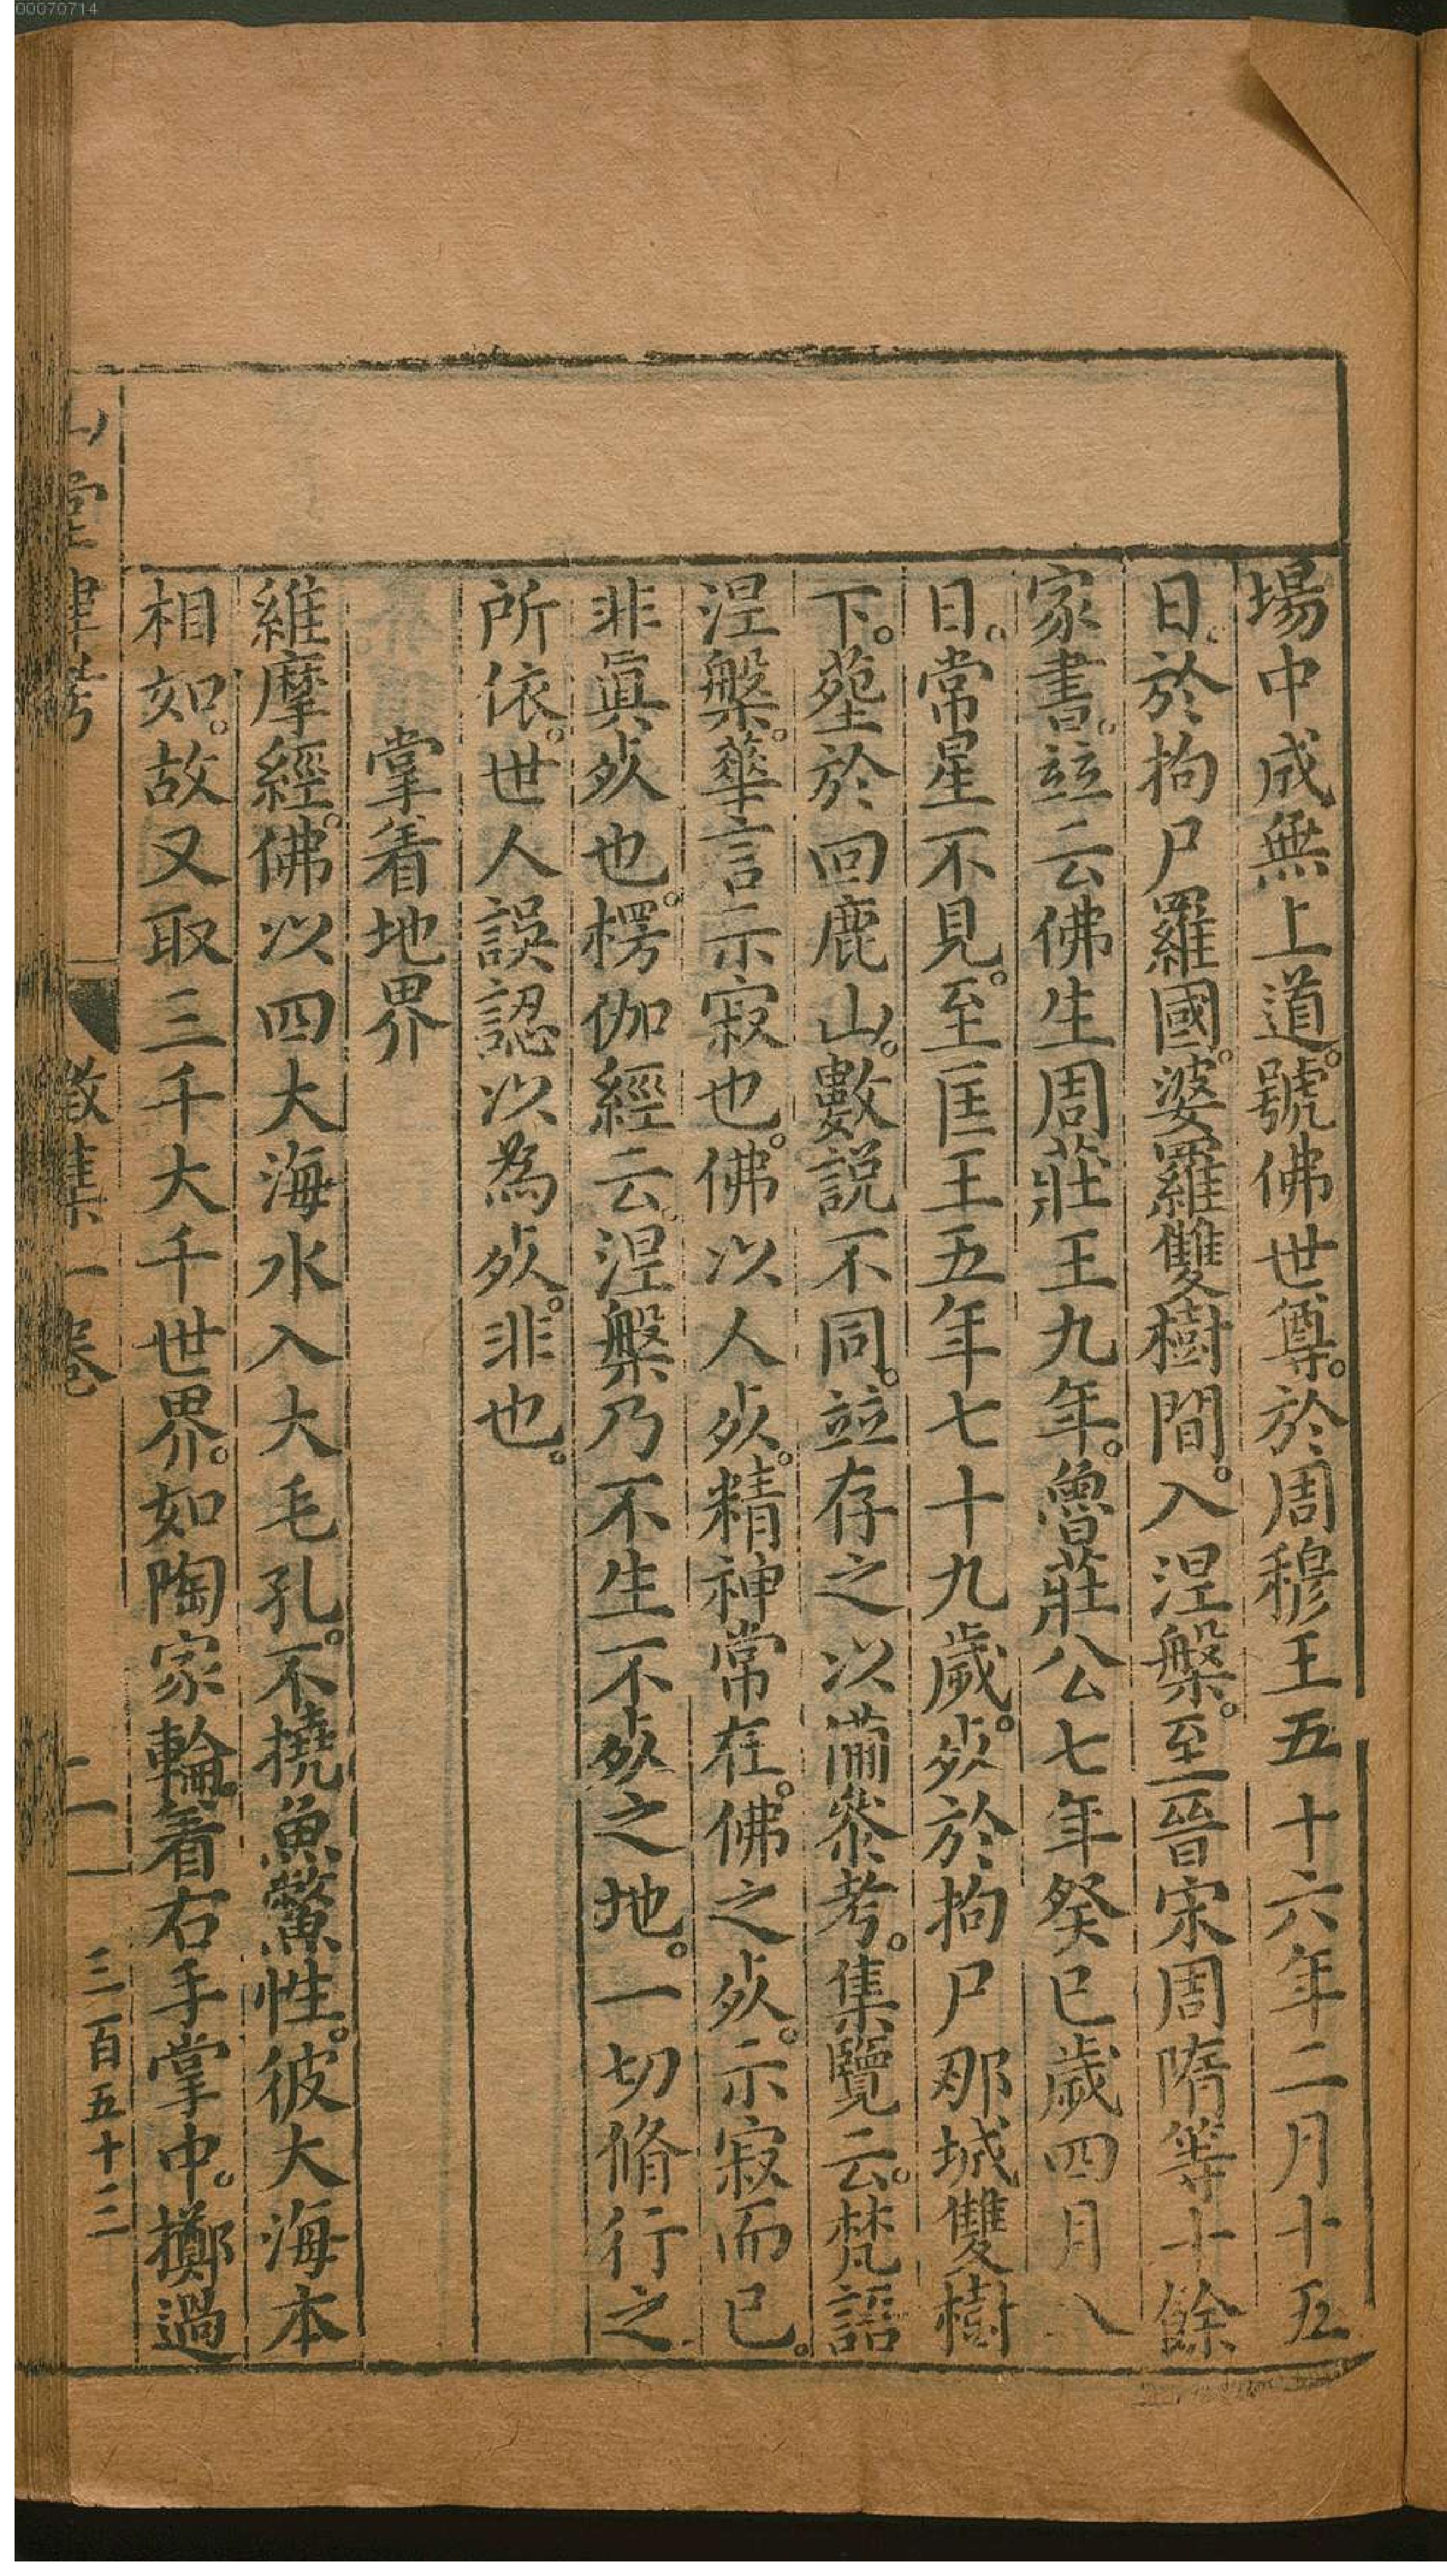 00070714
場中成無上道。號佛世尊。於周穆王五十六年二月十五
日。於拘尸羅國。婆羅雙樹間。入涅槃。至晉宋周隋等十餘
家書。竝云佛生周莊王九年。魯莊公七年癸巳歲四月八
日。常星不見。至匡王五年七十九歲。歿於拘尸那城雙樹
下。塟於回鹿山。數說不同。竝存之以備參考。集覽云。梵語
涅槃。華言示寂也。佛以人歿。精神常在。佛之歿。示寂而已。
非眞歿也。楞伽經云。涅槃乃不生不歿之地。一切脩行之
所依。世人誤認以為歿。非也。
掌着地界
維摩經。佛以四大海水入大毛孔。不撓魚鱉性。彼大海本
相如。故又取三千大千世界。如陶家輪。着右手掌中。擲過
山堂肆考 徵集一卷 二 三百五十三